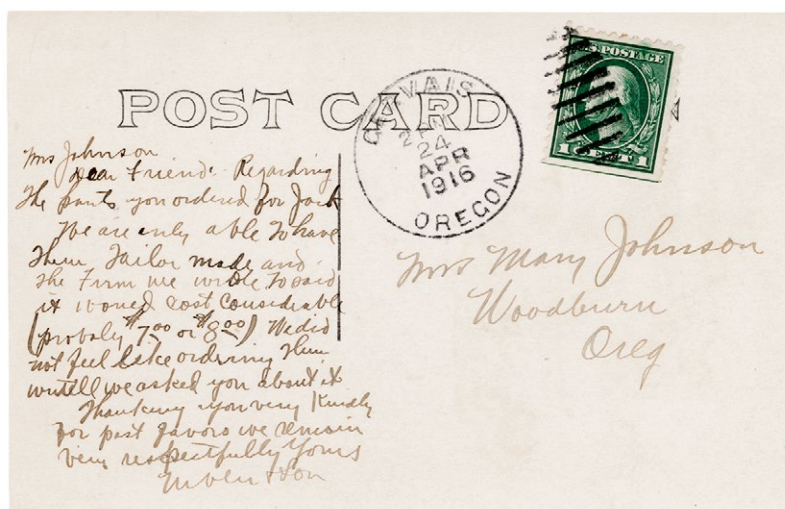 POST CARD
GERVAIS
24
APR
1916
OREGON
U.S. POSTAGE
1 CENT 1
Mrs Johnson
Dear Friend. Regarding
the pants you ordered for Jack
We are only able to have
them Tailor made and
the Firm we wrote to said
it would cost considerable
(probaly $7.00 or $8.00) We did
not feel like ordering them
untill we asked you about it
Thanking you very Kindly
for past favors we remain
very respectfully yours
& Son
Mrs Mary Johnson
Woodburn
Oreg